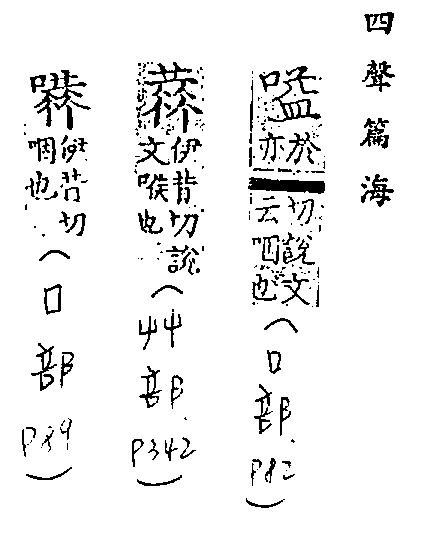 四聲篇海
嗌
於亦
切說文
云咽也
(口部.P82)
伊昔切說
文喉也
(艸部.P342)
伊昔切
咽也
(口部P89)